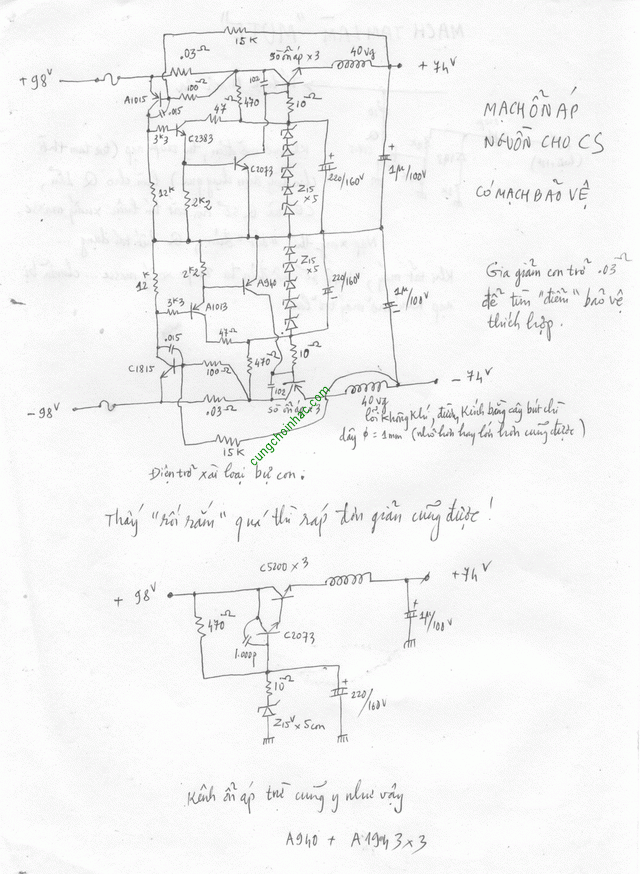 15K
.03Ω
sò ổn áp x 3
40vg
+98V
+74V
100Ω
102
A1015
.015
47Ω
470
10Ω
3K3
C2383
C2073
MẠCH ỔN ÁP
NGUỒN CHO CS
CÓ MẠCH BẢO VỆ
12K
2K2
Z15
x5
220/160V
1µ/100V
12K
2K2
A940
Z15
x5
220/160V
1µ/100V
Gia giảm con trở .03Ω
để tìm "điểm" bảo vệ
thích hợp.
3K3
A1013
47Ω
.015
C1815
100Ω
470Ω
10Ω
102
-98V
.03Ω
sò ổn áp x 3
40vg
-74V
15K
lõi không khí, đường kính bằng cây bút chì
dây φ = 1mm (nhỏ hơn hay lớn hơn cũng được)
cungchoinhac.com
Điện trở xài loại bự con.
Thấy "rối rắm" quá thì ráp đơn giản cũng được!
C5200 x 3
+98V
+74V
470Ω
C2073
1.000p
1µ/100V
10Ω
220/160V
Z15V x 5 con
Kênh ổn áp trừ cũng y như vậy
A940 + A1943 x 3